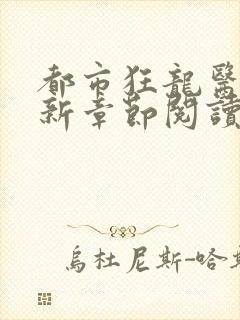 都市狂龍醫
新章節閱讀
烏杜尼斯-哈斯